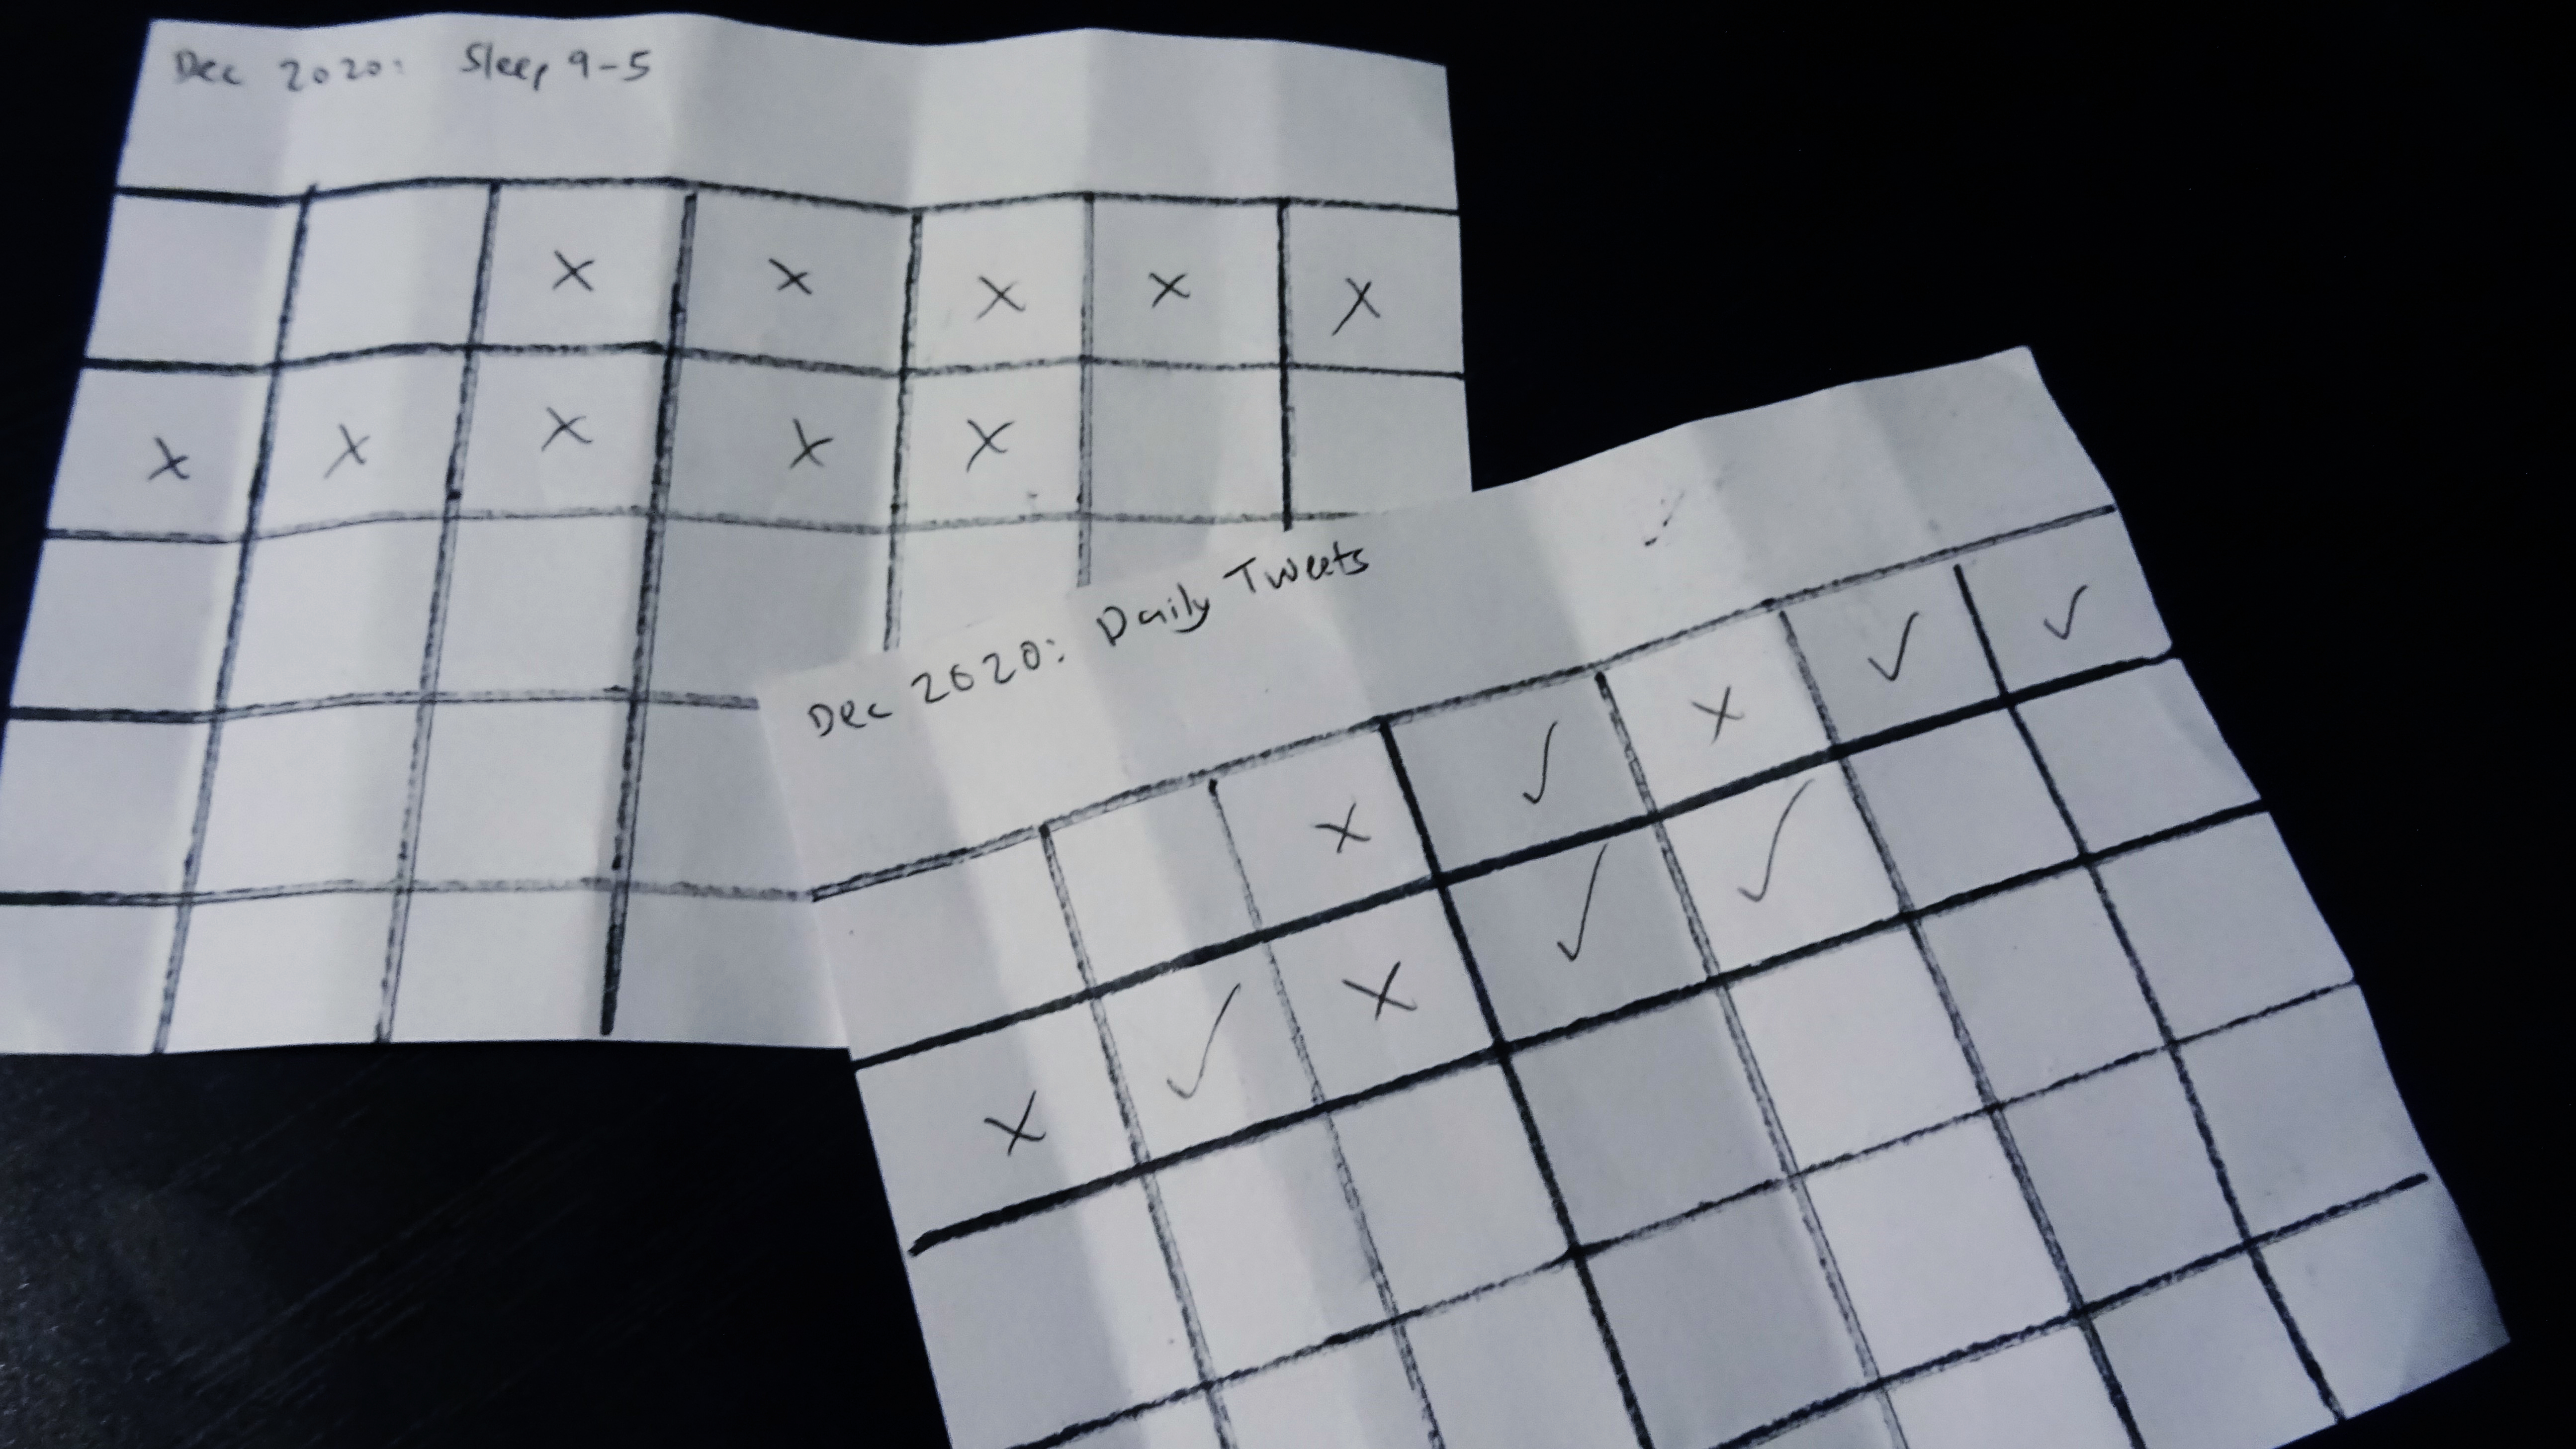 Dec 2020: Sleep 9-5
x x x x x
x x x x x
Dec 2020: Daily Tweets
x ✓ x ✓ ✓
x ✓ x ✓ ✓